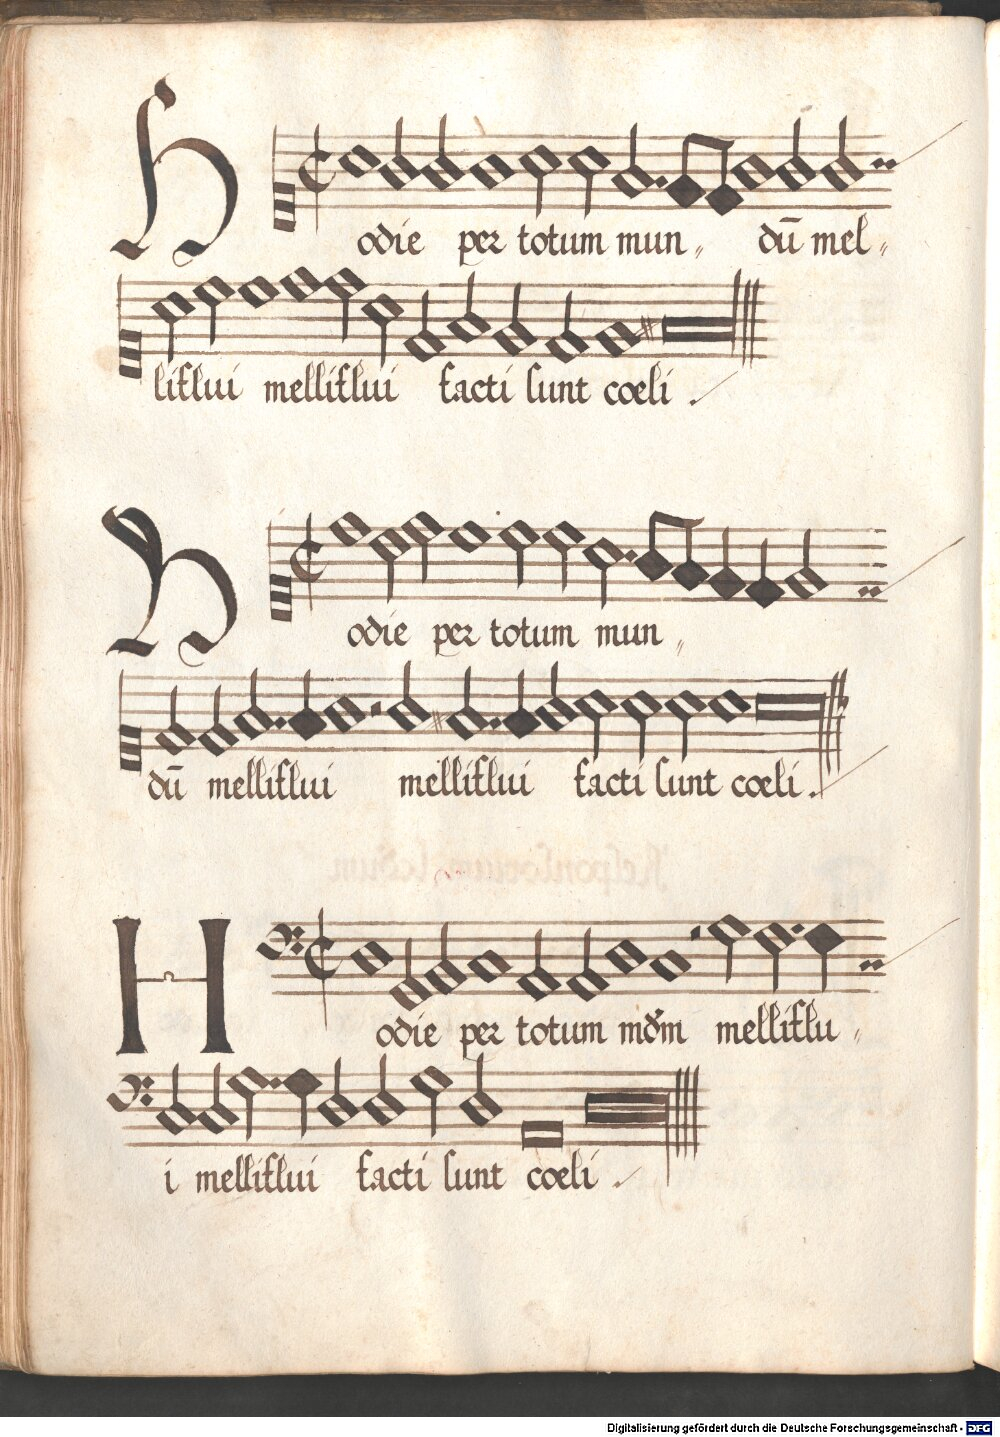 Hodie per totum mun〃 dū mel〃
liflui melliflui facti sunt coeli.
Hodie per totum mun〃
dū melliflui melliflui facti sunt coeli.
Hodie per totum mdm melliflu〃
i melliflui facti sunt coeli.
Digitalisierung gefördert durch die Deutsche Forschungsgemeinschaft - DFG